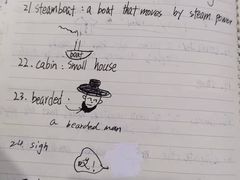 21 steamboat : a boat that moves by steam power
boat
22. cabin : small house
23. bearded :
a bearded man
24. sigh
哎!